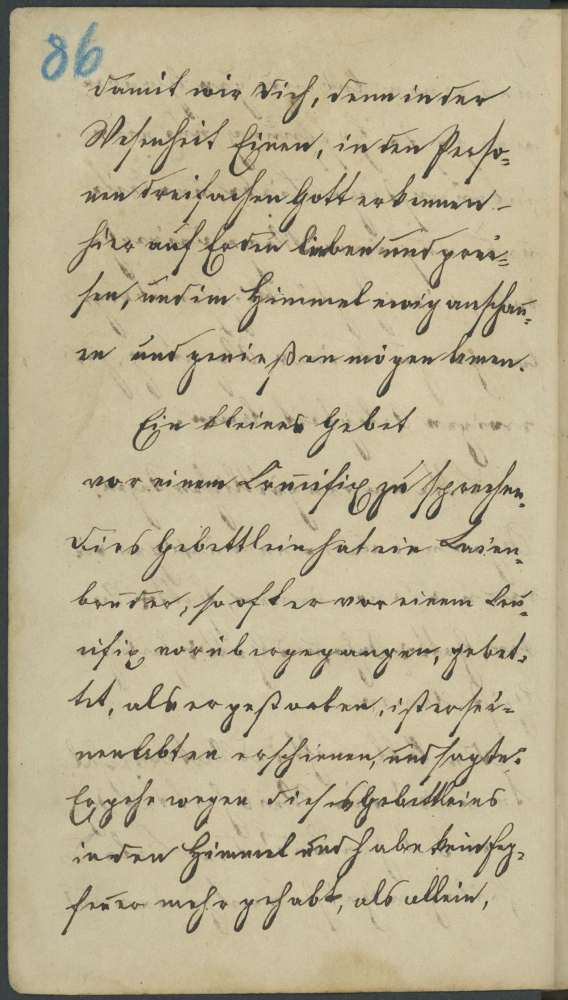 86
damit wir Dich, denn in der
Wesenheit Einen, in den Perso-
nen dreifachen Gott erkennen -
hier auf Erden lieben und prei-
sen, und im Himmel ewig anschau-
en und genießen mögen Amen.
Ein kleines Gebet
vor einem Crucifix zu sprechen.
Dies Gebettlein hat ein Laien-
bruder, so oft er vor einem Cru-
cifix vorübergegangen, gebet-
tet, als er gestorben, ist er sei-
nen Abten erschienen, und sagte:
Er gehe wegen dieses Gebettleins
in den Himmel und habe kein Feg-
feuer mehr gehabt, als allein,